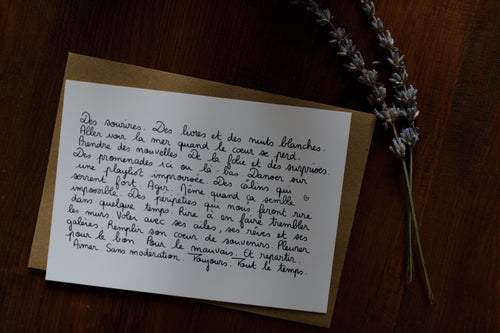 Des sourires. Des livres et des nuits blanches.
Aller voir la mer quand le cœur se perd.
Prendre des nouvelles. De la folie et des surprises.
Des promenades ici ou là-bas. Danser sur
une playlist improvisée. Des câlins qui
serrent fort. Agir. Même quand ça semble
impossible. Des péripéties qui nous feront rire
dans quelque temps. Rire à en faire trembler
les murs. Voler avec ses ailes, ses rêves et ses
galères. Remplir son cœur de souvenirs. Pleurer
pour le bon. Pour le mauvais. Et repartir.
Aimer. Sans modération. Toujours. Tout le temps.